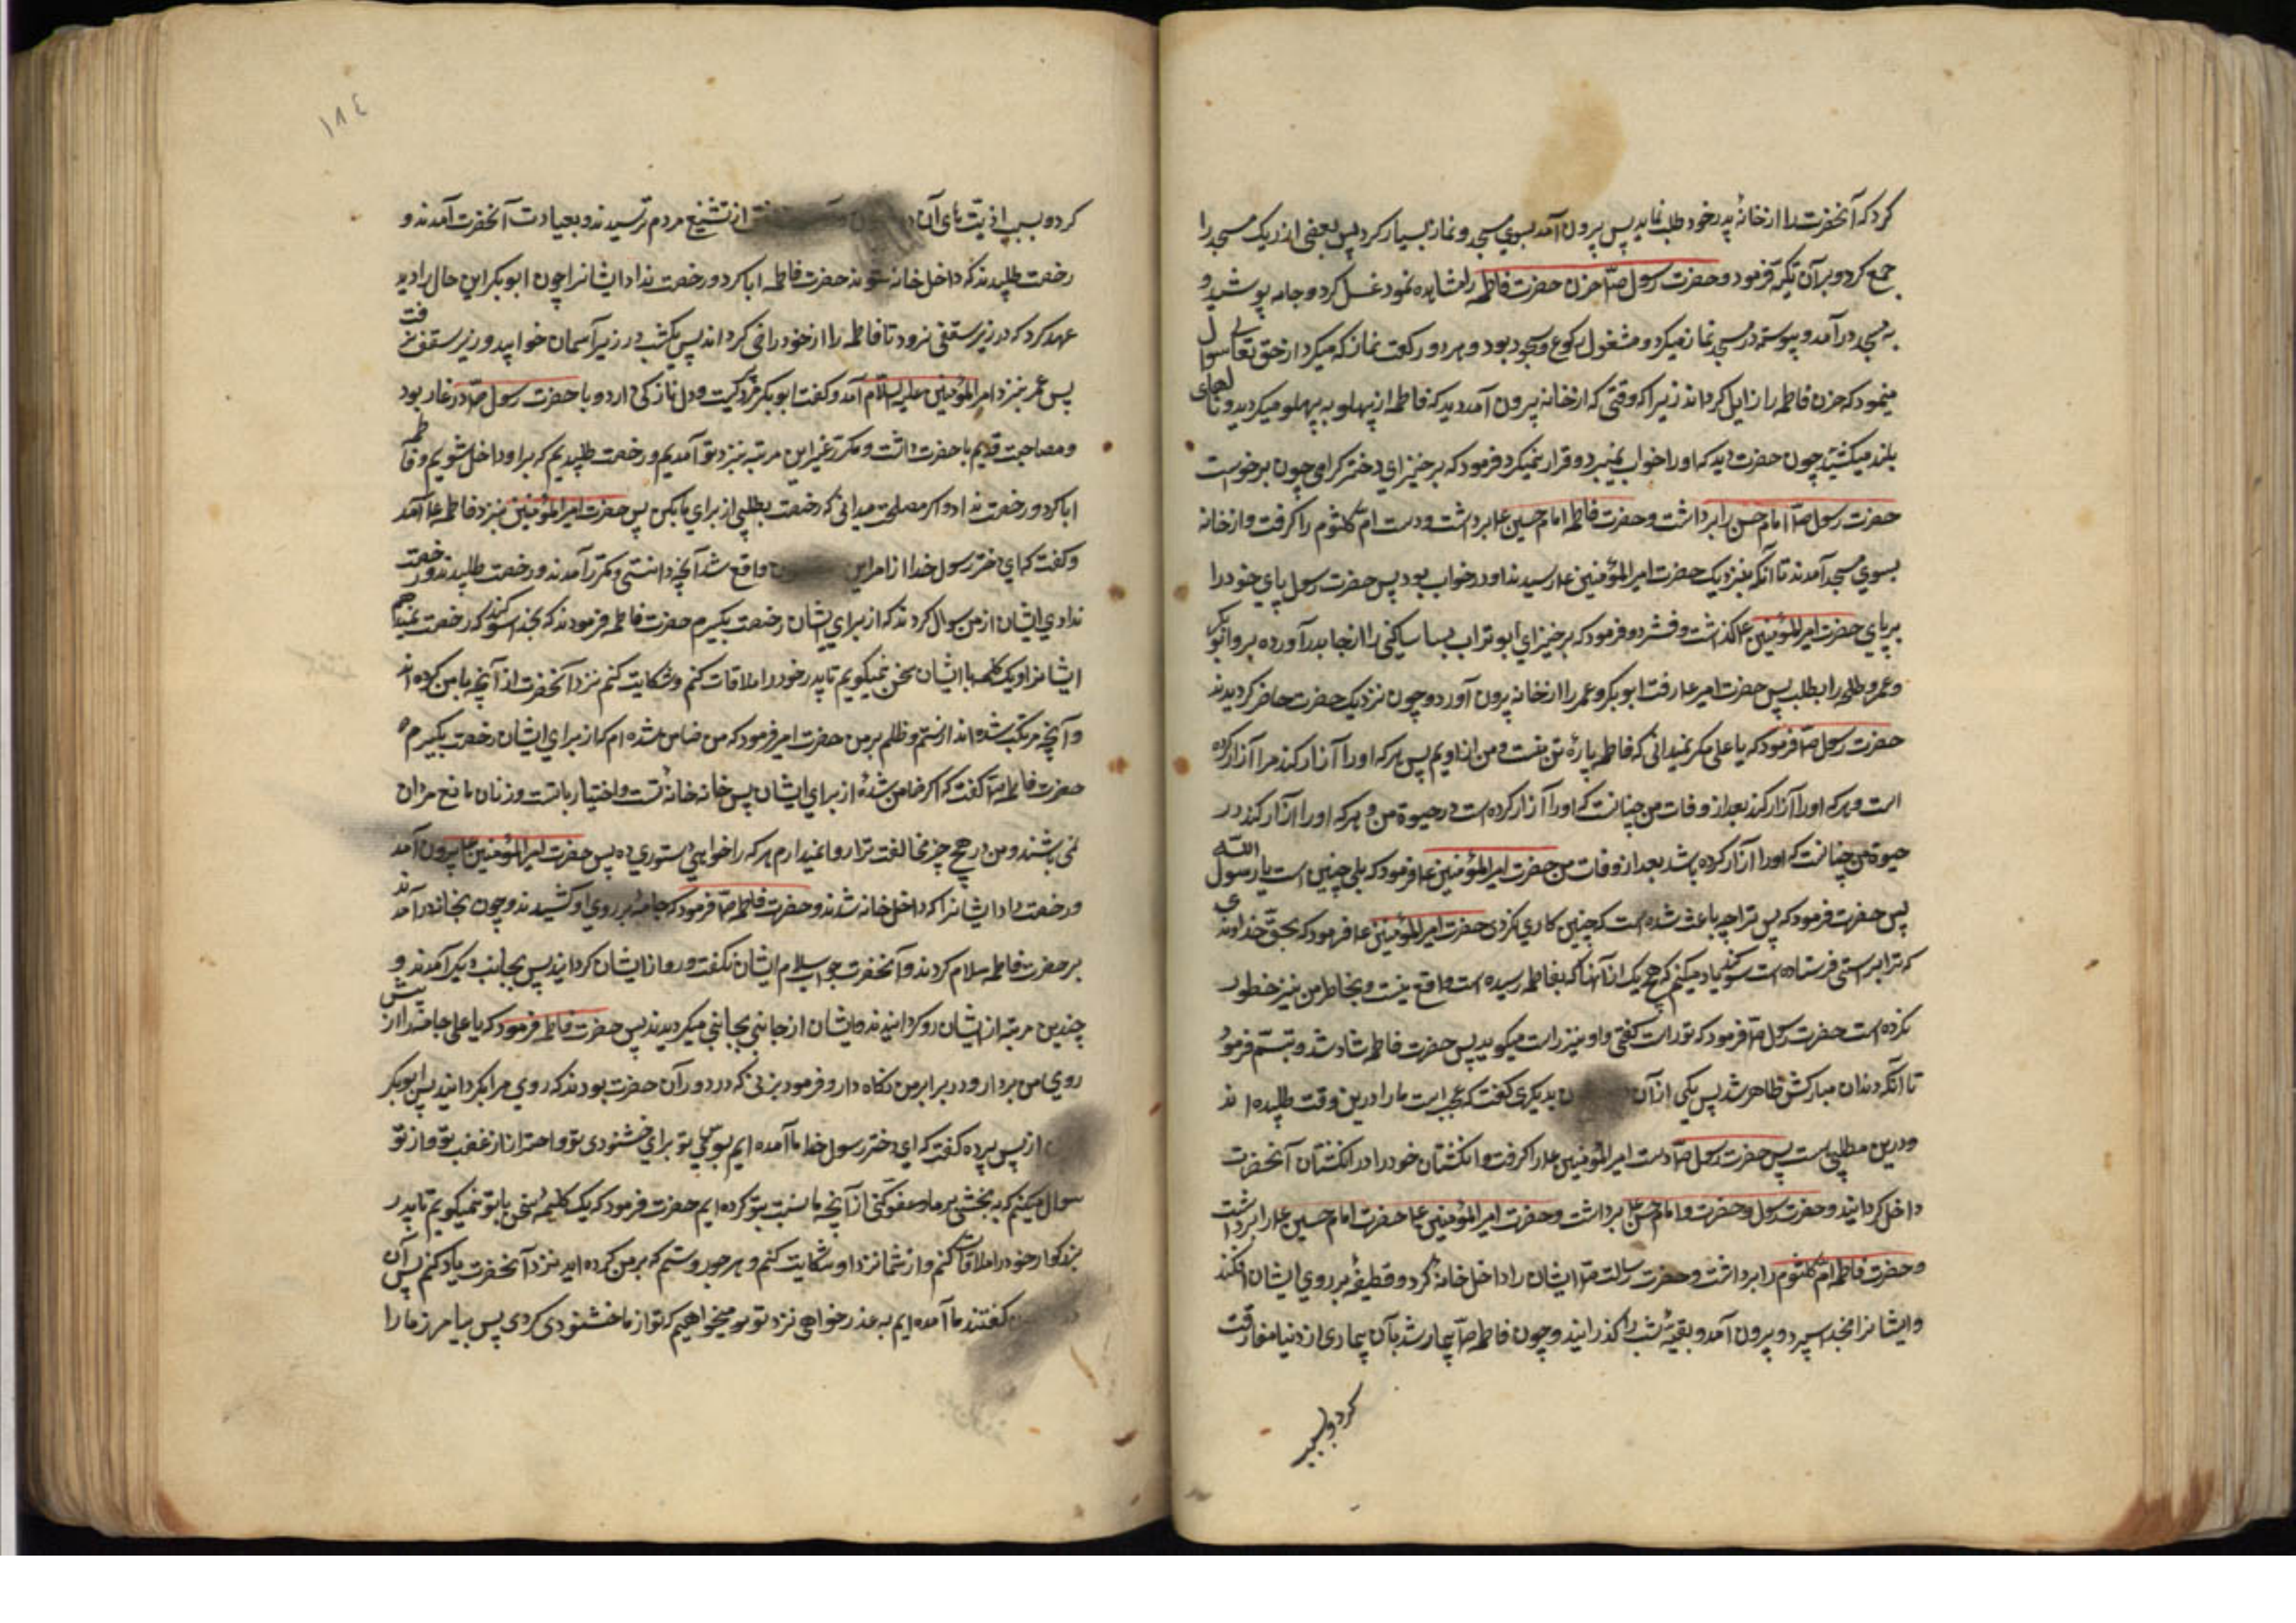 کرد که آنحضرت را از خانهٔ پدر خود طلب نماید پس بیرون آمد بسوی مسجد و نماز بسیار کرد پس بعضی از ریک مسجد را
جمع کرد و بر آن تکیه فرمود و حضرت رسول صٓ حزن حضرت فاطمه را مشاهده نمود غسل کرد و جامه پوشید و
به مسجد در آمد و پیوسته در مسجد نماز میکرد و مشغول رکوع و سجود بود و هر دو رکعت نماز که میکرد از حق تعالی سوال
مینمود که حزن فاطمه را زایل کرداند زیرا که وقتی که از خانه بیرون آمد دید که فاطمه از پهلو به پهلو میکردید و نالهای
بلند میکشید چون حضرت دید که او را خواب نمیبرد و قرار نمیکرد فرمود که برخیز ای دختر کرامی چون برخواست
حضرت رسول صٓ امام حسن را برداشت و حضرت فاطمه امام حسین ع را برداشت و دست ام کلثوم را کرفت و از خانه
بسوی مسجد آمدند تا آنکه بنزدیک حضرت امیرالمؤمنین ع رسیدند او در خواب بود پس حضرت رسول پای خود را
بر پای حضرت امیرالمؤمنین ع کذاشت و فشرد و فرمود که برخیز ای ابوتراب بسا ساکنی را از جا بدر آورده برو ابوبکر
و عمر و طلحه را بطلب پس حضرت امیر ع رفت ابوبکر و عمر را از خانه بیرون آورد و چون نزدیک حضرت حاضر کردیدند
حضرت رسول صٓ فرمود که یا علی مکر نمیدانی که فاطمه پارهٔ تن منست و من از اویم پس هر که او را آزار کند مرا آزار کرده
است و هر که او را آزار کند بعد از وفات من چنانست که او را آزار کرده است در حیوة من و هر که او را آزار کند در
حیوة من چنانست که او را آزار کرده باشد بعد از وفات من حضرت امیرالمؤمنین ع فرمود که بلی چنین است یا رسول الله
پس حضرت فرمود که پس ترا چه باعث شده است که چنین کاری کردی حضرت امیرالمؤمنین ع فرمود که بحق خداوندی
که ترا براستی فرستاده است سوکند یاد میکنم که هیچ یک از آنها که بفاطمه رسیده است واقع نیست و بخاطر من نیز خطور
نکرده است حضرت رسول صٓ فرمود که تو راست کفتی و او نیز راست میکوید پس حضرت فاطمه شاد شد و تبسم فرمود
تا آنکه دندان مبارکش ظاهر شد پس یکی از آن بدیکری کفت که عجب است ما را درین وقت طلبیده اند
و درین مطلبی است پس حضرت رسول صٓ دست امیرالمؤمنین ع را کرفت و انکشتان خود را در انکشتان آنحضرت
داخل کردانید و حضرت رسول و حضرت و امام حسن ع برداشت و حضرت امیرالمؤمنین ع حضرت امام حسین ع را برداشت
و حضرت فاطمه ام کلثوم را برداشت و حضرت رسالت صٓ ایشان را داخل خانه کرد و قطیفهٔ بر روی ایشان افکند
و ایشانرا بخدا سپرد و بیرون آمد و بقیهٔ شب را کذرانید و چون فاطمه صٓ بیمار شد بآن بیماری از دنیا مفارقت
کرد و بسبب
۱۸٤
کرد و بسبب اذیّت های آن از تشنیع مردم ترسیدند و بعیادت آنحضرت آمدند و
رخصت طلبیدند که داخل خانه شوند حضرت فاطمه ابا کرد و رخصت نداد ایشانرا چون ابوبکر این حال را دید
عهد کرد که در زیر سقفی نرود تا فاطمه را از خود راضی کرداند پس یکشب در زیر آسمان خوابید و زیر سقف نرفت
پس عمر بنزد امیرالمؤمنین علیه السلام آمد و کفت ابوبکر مردیست و دل نازکی دارد و با حضرت رسول صٓ در غار بود
و مصاحبت قدیم با حضرت داشت و مکرر غیر این مرتبه بنزد تو آمدیم و رخصت طلبیدیم که بر او داخل شویم و فاطمه
ابا کرد و رخصت نداد و اکر مصلحت میدانی که رخصت بطلبی از برای ما بکن پس حضرت امیرالمؤمنین بنزد فاطمه ع آمد
و کفت که ای دختر رسول خدا از امر این واقع شد آنچه دانستی و مکرر آمدند و رخصت طلبیدند و رخصت
ندادی ایشان از من سوال کردند که از برای ایشان رخصت بکیرم حضرت فاطمه فرمودند که بخدا سوکند که رخصت نمیدهم
ایشانرا و یک کلمه با ایشان سخن نمیکویم تا پدر خود را ملاقات کنم و شکایت کنم نزد آنحضرت از آنچه با من کرده اند
و آنچه مرتکب شده اند از ستم و ظلم بر من حضرت امیر فرمود که من ضامن شده ام که از برای ایشان رخصت بکیرم
حضرت فاطمه صٓ کفت که اکر ضامن شدهٔ از برای ایشان پس خانه خانهٔ تست و اختیار با تست و زنان تابع مردان
می باشند و من در هیچ چیز مخالفت ترا روا نمیدارم هر که را خواهی دستوری ده پس حضرت امیرالمؤمنین ع بیرون آمد
و رخصت داد ایشانرا که داخل خانه شدند و حضرت فاطمه صٓ فرمود که جامهٔ بر روی او کشیدند و چون بخانه در آمدند
بر حضرت فاطمه سلام کردند و آنحضرت جواب سلام ایشان نکفت و رو از ایشان کردانید پس بجانب دیکر آمدند و
چندین مرتبه از ایشان رو کردانیدند و ایشان از جانبی بجانبی میکردیدند پس حضرت فاطمه فرمود که یا علی جامه را از پیش
روی من بردار و در برابر من نکاه دار و فرمود بزنی که در دور آن حضرت بودند که روی مرا بکردانید پس ابوبکر
از پس پرده کفت که ای دختر رسول خدا ما آمده ایم بسوی تو برای خشنودی تو و احتراز از غضب تو و از تو
سوال میکنم که ببخشی بر ما و عفو کنی از آنچه ما نسبت بتو کرده ایم حضرت فرمود که یک کلمهٔ سخن با تو نمیکویم تا پدر
بزرکوار خود را ملاقات کنم و از شما نزد او شکایت کنم و هر جور و ستم که بر من کرده اید نزد آنحضرت یاد کنم پس آن
کفتند ما آمده ایم به عذر خواهی نزد تو و میخواهیم که تو از ما خشنودی کردی پس بیامرز ما را